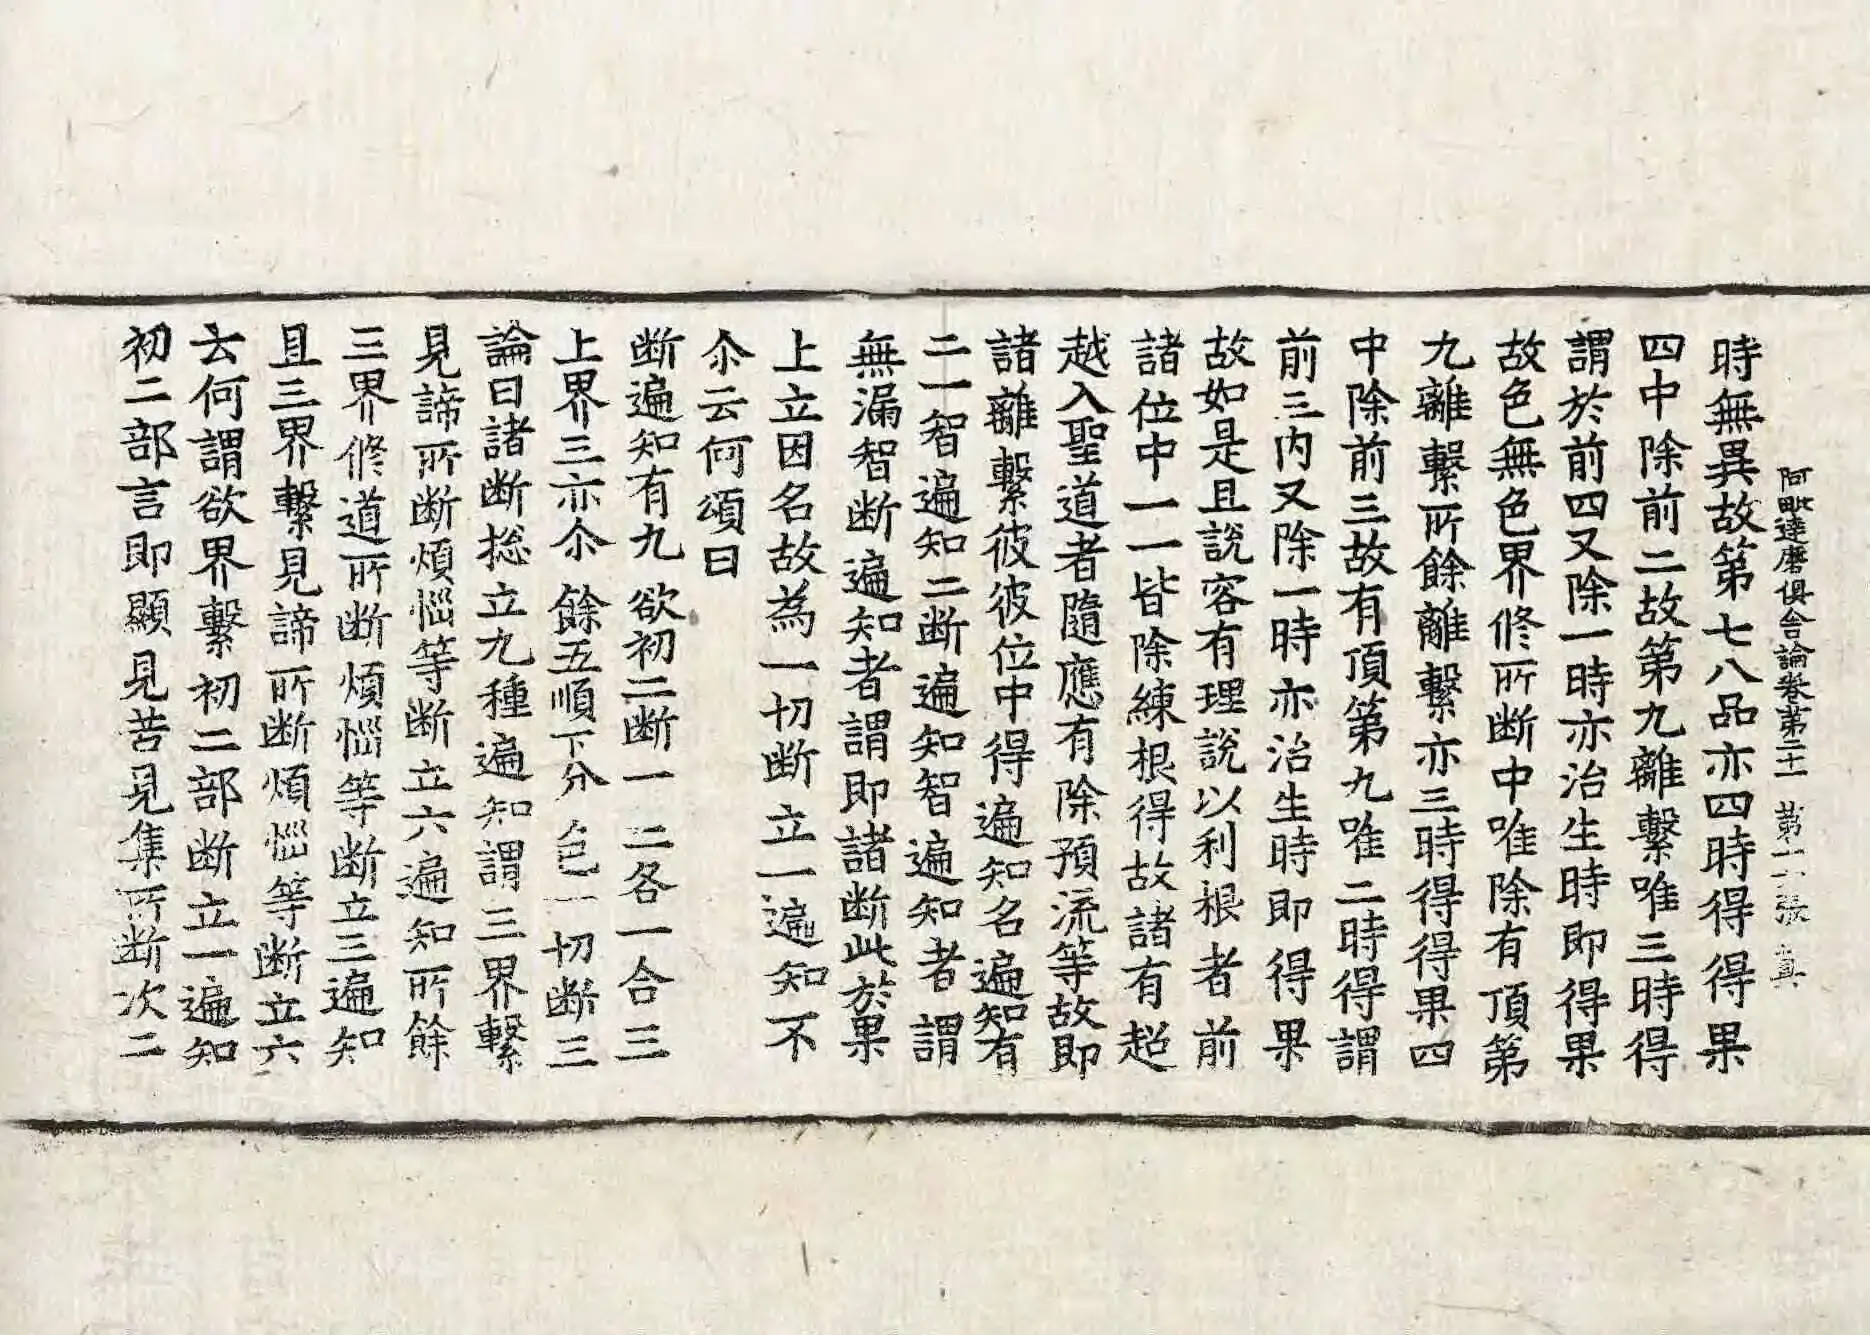 阿毗達磨俱舍論卷第二十一 第十一張 真
時無異故第七八品亦四時得得果
四中除前二故第九離繫唯三時得
謂於前四又除一時亦治生時即得果
故色無色界修所断中唯除有頂第
九離繫所餘離繫亦三時得得果四
中除前三故有頂第九唯二時得謂
前三內又除一時亦治生時即得果
故如是且說容有理說以利根者前
諸位中一一皆除練根得故諸有超
越入聖道者隨應有除預流等故即
諸離繫彼彼位中得遍知名遍知有
二一智遍知二断遍知智遍知者謂
無漏智断遍知者謂即諸断此於果
上立因名故為一切断立一遍知不
尒云何頌曰
断遍知有九 欲初二断一 二各一合三
上界三亦尒 餘五順下分 色一切断三
論曰諸断捴立九種遍知謂三界繫
見諦所断煩惱等断立六遍知所餘
三界修道所断煩惱等断立三遍知
且三界繫見諦所断煩惱等断立六
云何謂欲界繫初二部断立一遍知
初二部言即顯見苦見集所断次二